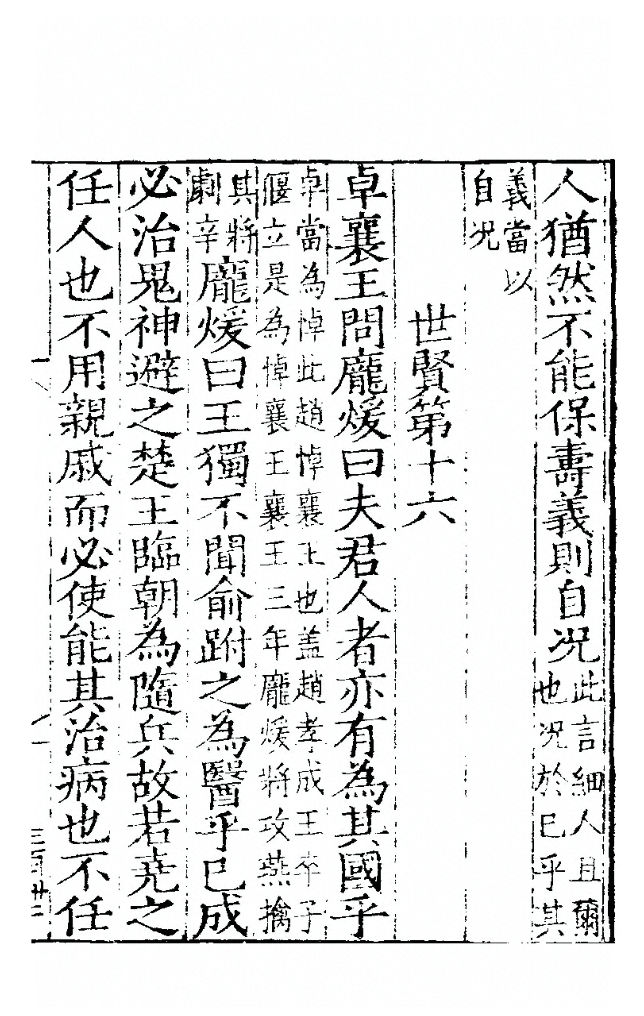 人猶然不能保壽義則自况此言細人且爾也况於已乎其
義當以自况
世賢第十六
卓襄王問龐煖曰夫君人者亦有為其國乎
卓當為悼此趙悼襄王也盖趙孝成王卒子
偃立是為悼襄王襄王三年龐煖將攻燕擒
其將劇辛龐煖曰王獨不聞俞跗之為醫乎已成
必治鬼神避之楚王臨朝為隨兵故若堯之
任人也不用親戚而必使能其治病也不任